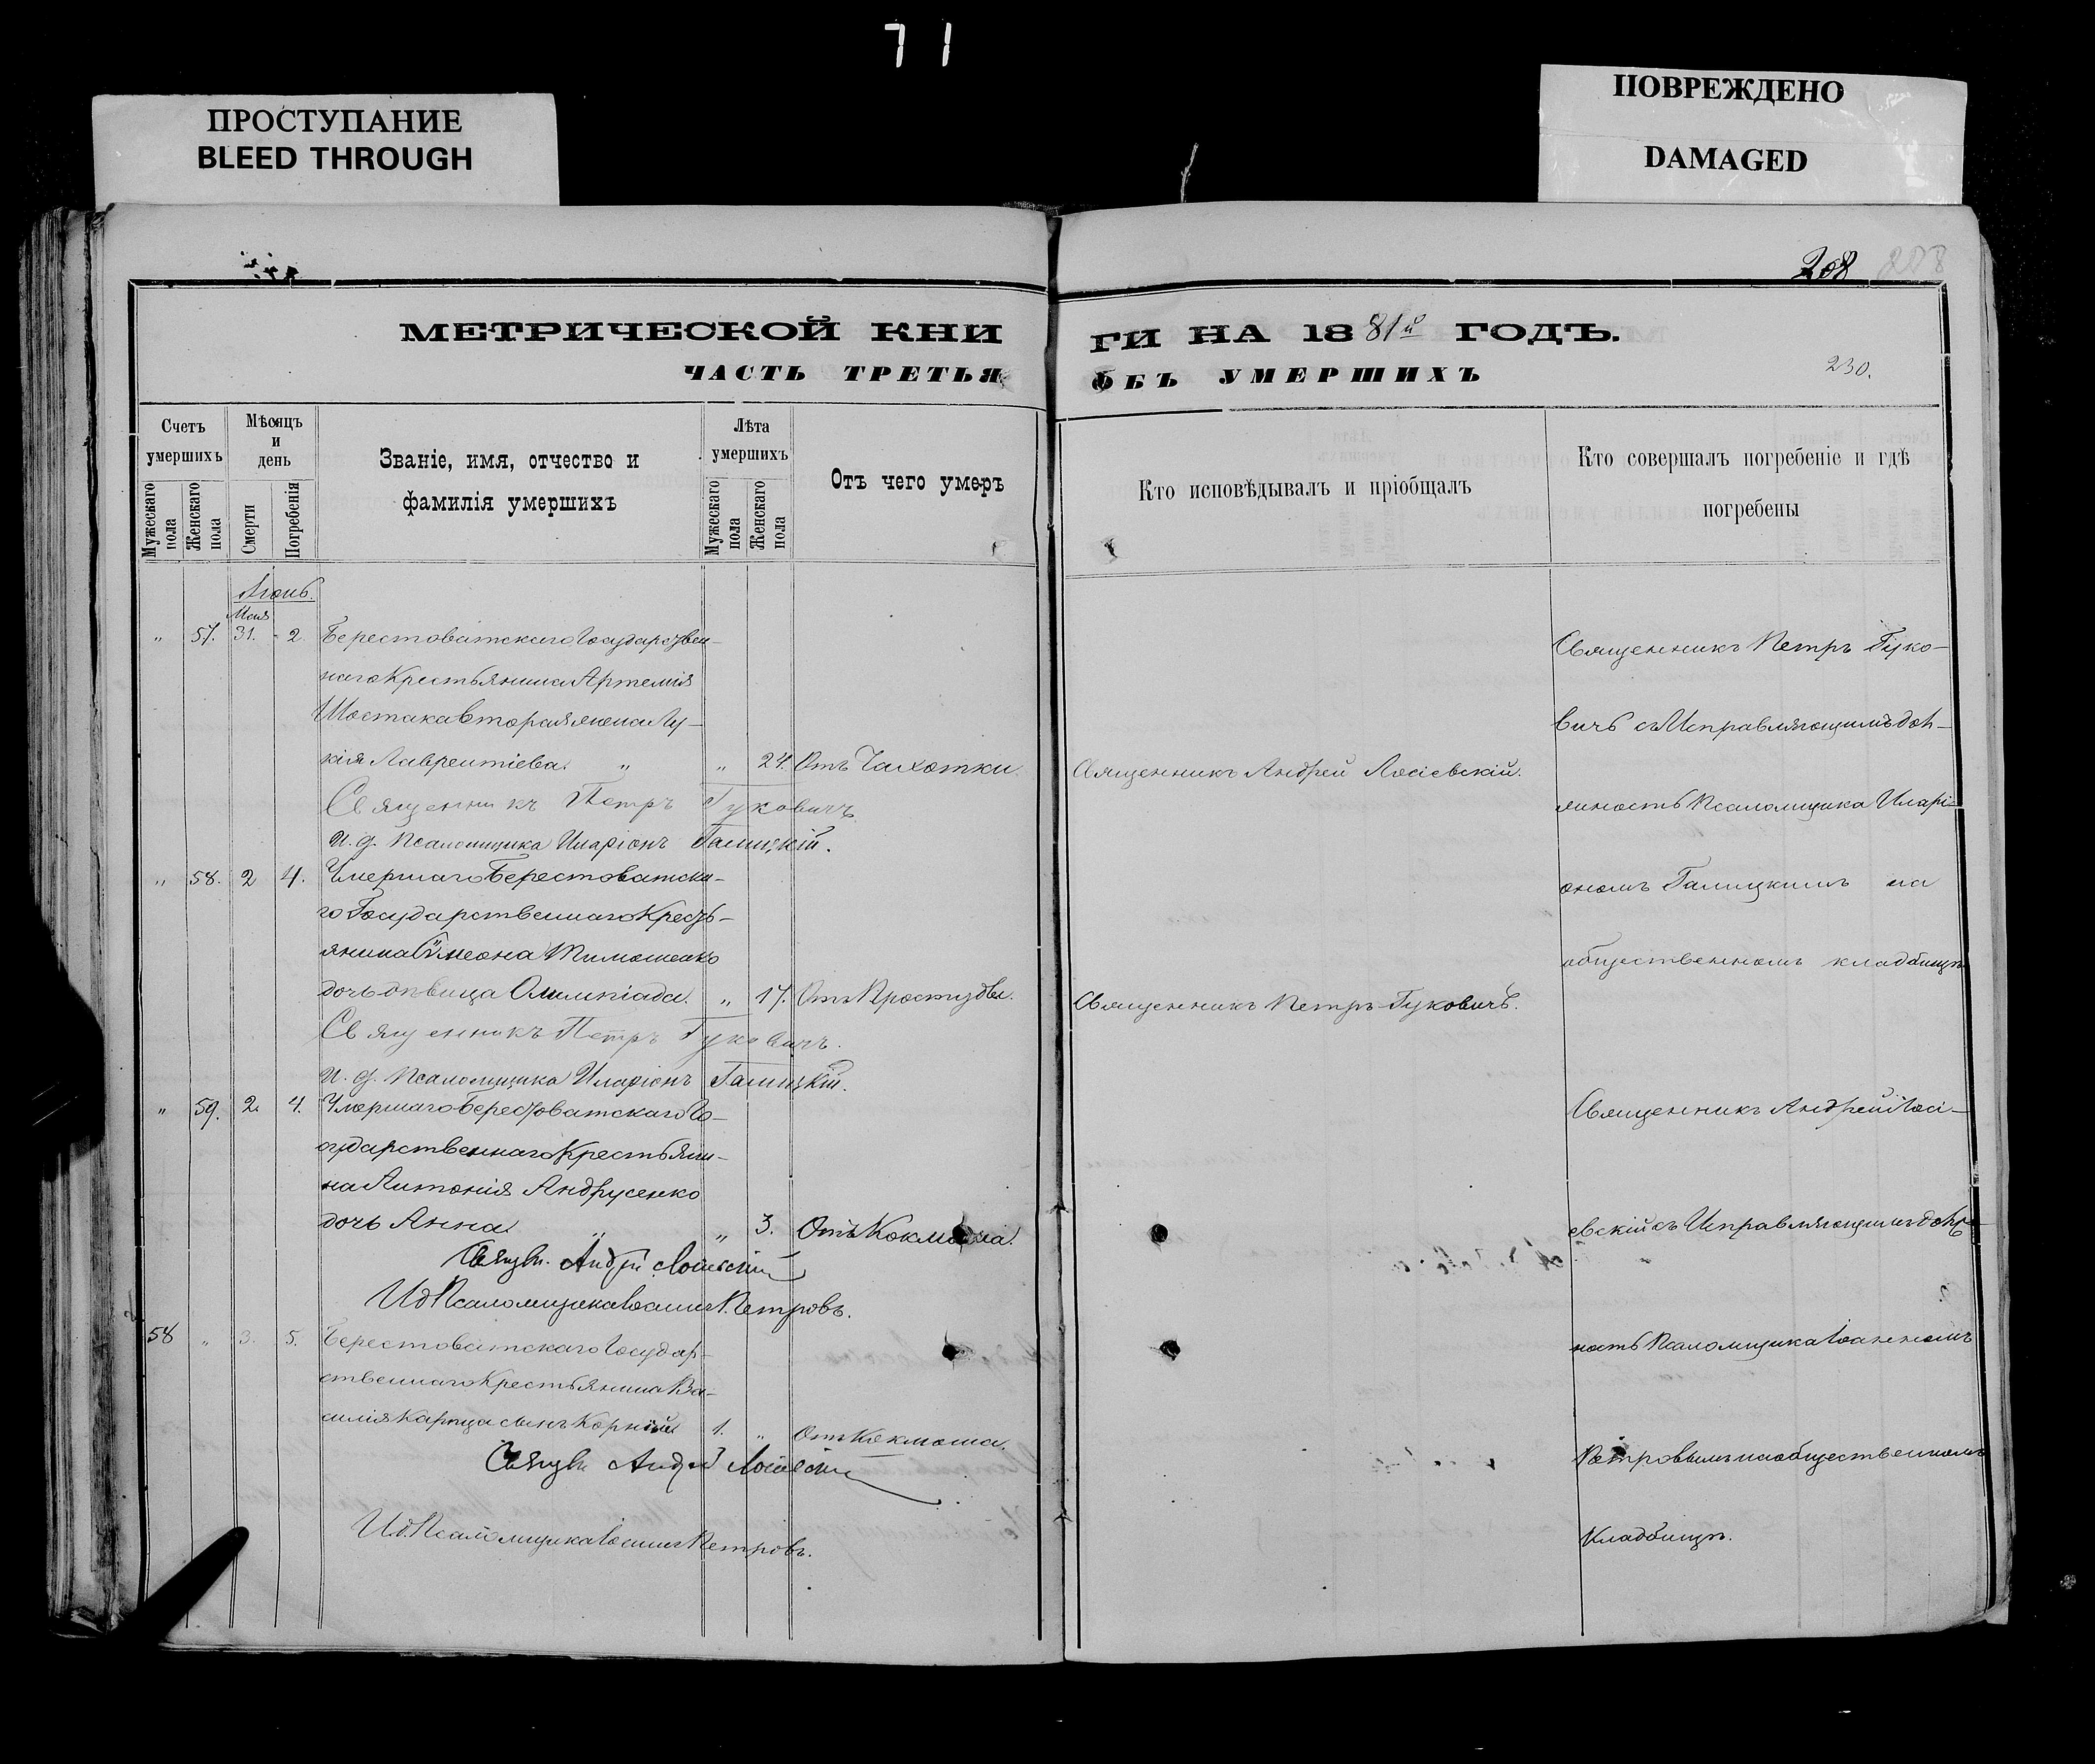 71
ПРОСТУПАНИЕ
BLEED THROUGH
ПОВРЕЖДЕНО
DAMAGED
208 208
МЕТРИЧЕСКОЙ КНИ
ГИ НА 1881й ГОДЪ.
ЧАСТЬ ТРЕТЬЯ
ОБЪ УМЕРШИХЪ
230.
Счетъ умершихъ
Мужескаго пола
Женскаго пола
Мѣсяцъ и день
Смерти
Погребенія
Званіе, имя, отчество и
фамилія умершихъ
Лѣта умершихъ
Мужескаго пола
Женскаго пола
Отъ чего умеръ
Кто исповѣдывалъ и пріобщалъ
Кто совершалъ погребеніе и гдѣ
погребены
Іюнь.
Мая
" 57. 31. 2 Берестоватскаго Государствен-
наго Крестьянина Артемія
Шостака вторая жена Лу-
кія Лаврентіева. " " 24. Отъ Чахотки. Священникъ Андрей Лосіевскій.
Священникъ Петръ Гуковичъ
И. д. Псаломщика Иларіонъ Галицкій.
" 58. 2 4. Умершаго Берестоватска-
го Государственнаго Кресть-
янина Симеона Тимошенко
дочь дѣвица Олимпіада. " 17. Отъ Простуды. Священникъ Петръ Гуковичъ.
Священникъ Петръ Гуковичъ.
И. д. Псаломщика Иларіонъ Галицкій.
" 59. 2. 4. Умершаго Берестоватскаго Го-
сударственнаго Крестьяни-
на Антонія Андрусенко
дочь Анна. " " 3. Отъ Коклюша.
Священ. Андрей Лосіевскій
И д Псаломщика Іоаннъ Петровъ.
58 " 3. 5. Берестоватскаго Государ-
ственнаго Крестьянина Ва-
силія Карпца сынъ Корнілій 1. " Отъ Коклюша.
Священ Андрей Лосіевскій
И д. Псаломщика Іоаннъ Петровъ.
Священникъ Петръ Гуко-
вичъ съ Исправляющимъ дол-
жность Псаломщика Иларі-
ономъ Галицкимъ на
общественномъ кладбищѣ
Священникъ Андрей Лосі-
евскій съ Исправляющимъ долж-
ность Псаломщика Іоанномъ
Петровымъ на общественномъ
Кладбищѣ.